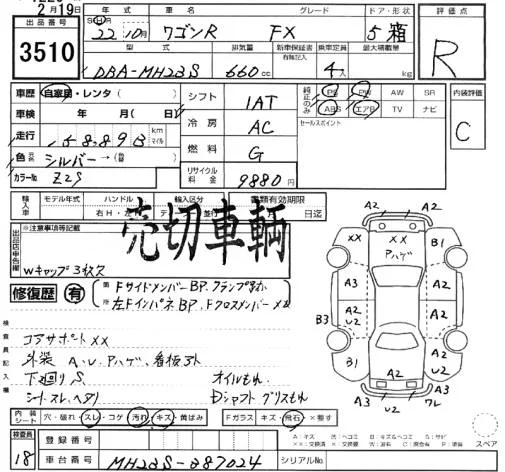 2月19日
出品番号 年式 車名 グレード ドア・形状 評価点
3510 22年10月 ワゴンR FX 5 箱 R
型式 排気量 新車保証書 乗車定員 最大積載量
有無記入
DBA-MH23S 660cc 4人 kg
車歴 自家用・レンタ( ) シフト 1AT 純正のみ PS PW AW SR 内装評価
車検 年 月( 日) 冷房 AC ABS エアB TV ナビ C
走行 58,893 km マイル セールスポイント
燃料 G
色 元色 シルバー→(色替)
カラーNo. Z2S リサイクル料金 9880円
輸入車 モデル年式 ハンドル 輸入区分 書類有効期限
右H・左H 日迄
売切車輌
出品店申告欄 ※注意事項等記載
Wキャップ3枚欠
修復歴 有 箇所 FサイドメンバーBP、クランプ有
左FインパネBP、FクロスメンバーXX
検査員記入欄
コアサポートXX
外装 A・U、Pハゲ、看板ネガ
下廻りS オイルもれ
シートスレ、ヘタリ Dシャフトグリスもれ
内装シート 穴・破れ・スレ・コゲ 汚れ・キズ・黄ばみ Fガラス キズ・飛石・×要す
検査員 18 登録番号
車台番号 MH23S-287024 シリアルNo.
A2
A2 A2
XX XX B1
Pハゲ
A3 A2
B3 A2 U2 A2
A3 A2 U2
A3 A2 U2 ワレ
スペア